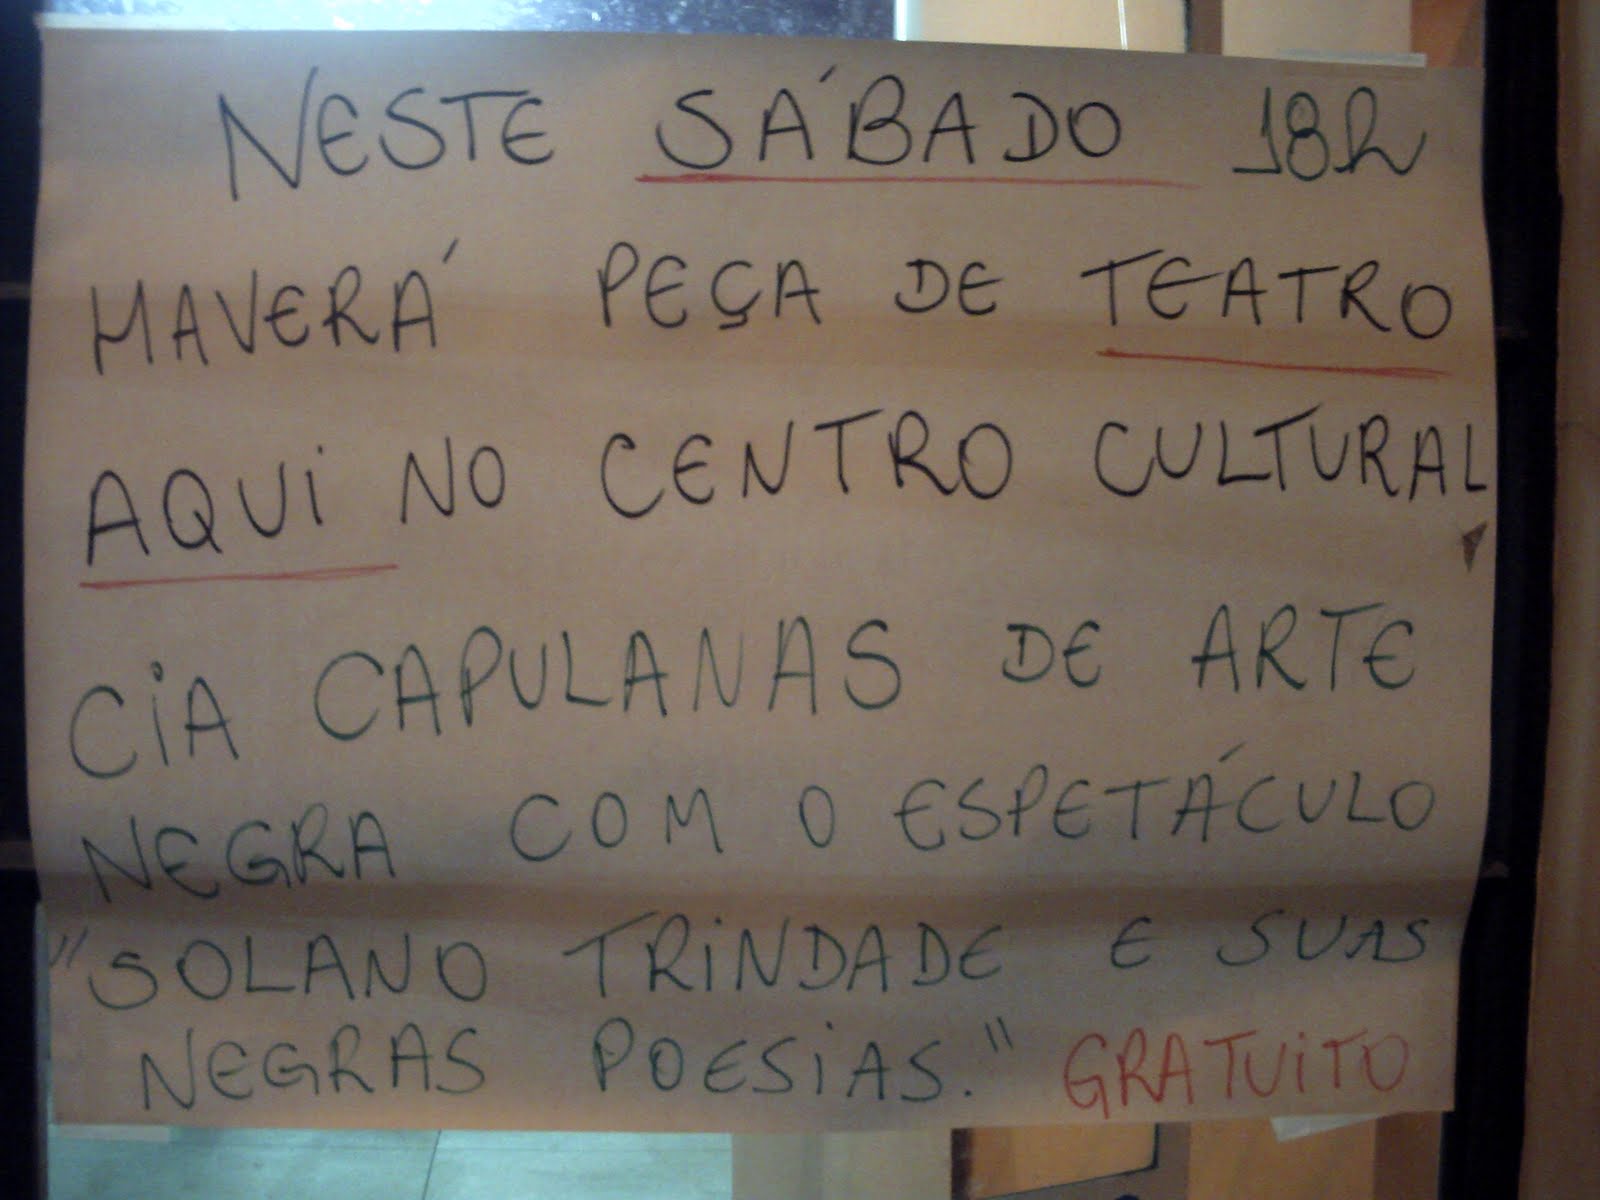 NESTE SÁBADO 18h
HAVERÁ PEÇA DE TEATRO
AQUi NO CENTRO CULTURAL
CiA CAPULANAS DE ARTE
NEGRA COM O ESPETÁCULO
"SOLANO TRiNDADE E SUAS
NEGRAS POESiAS." GRATUiTO